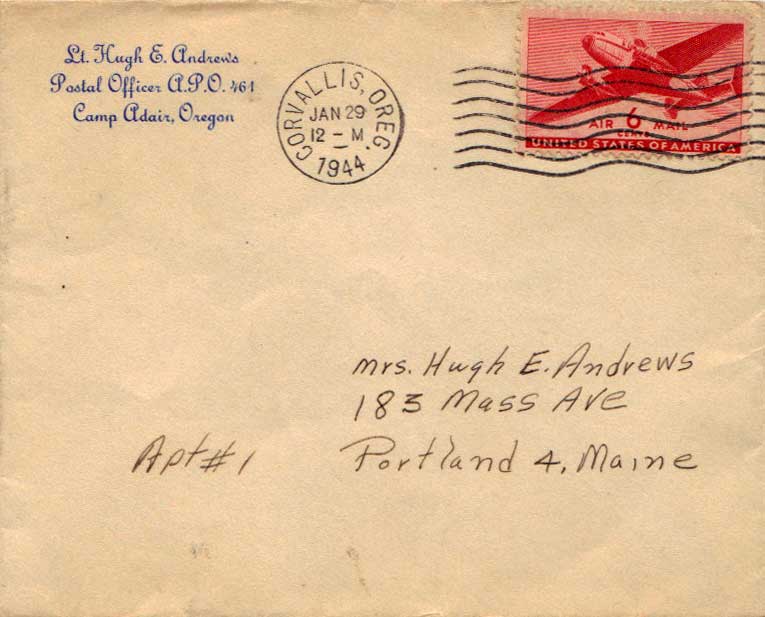 Lt. Hugh E. Andrews
Postal Officer A.P.O. 461
Camp Adair, Oregon
CORVALLIS, OREG.
JAN 29
12 – M
1944
AIR 6 MAIL
CENTS
UNITED STATES OF AMERICA
Mrs. Hugh E. Andrews
183 Mass Ave
Apt #1 Portland 4, Maine